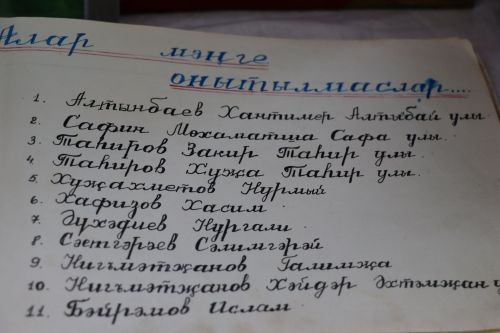 Алар мәңге
онытылмаслар....
1. Алтынбаев Хантимер Алтыбай улы
2. Сафин Мөхаматша Сафа улы.
3. Таһиров Закир Таһир улы.
4. Таһиров Хужа Таһир улы.
5. Хужахметов Нурмый
6. Хафизов Хасим
7. Әүхәдиев Нургали
8. Сәетгәрәев Сәлимгәрәй
9. Нигъмәтҗанов Галимҗа
10. Нигъмәтҗанов Хәйдәр Әхтәмҗан у
11. Бәйрәмов Ислам